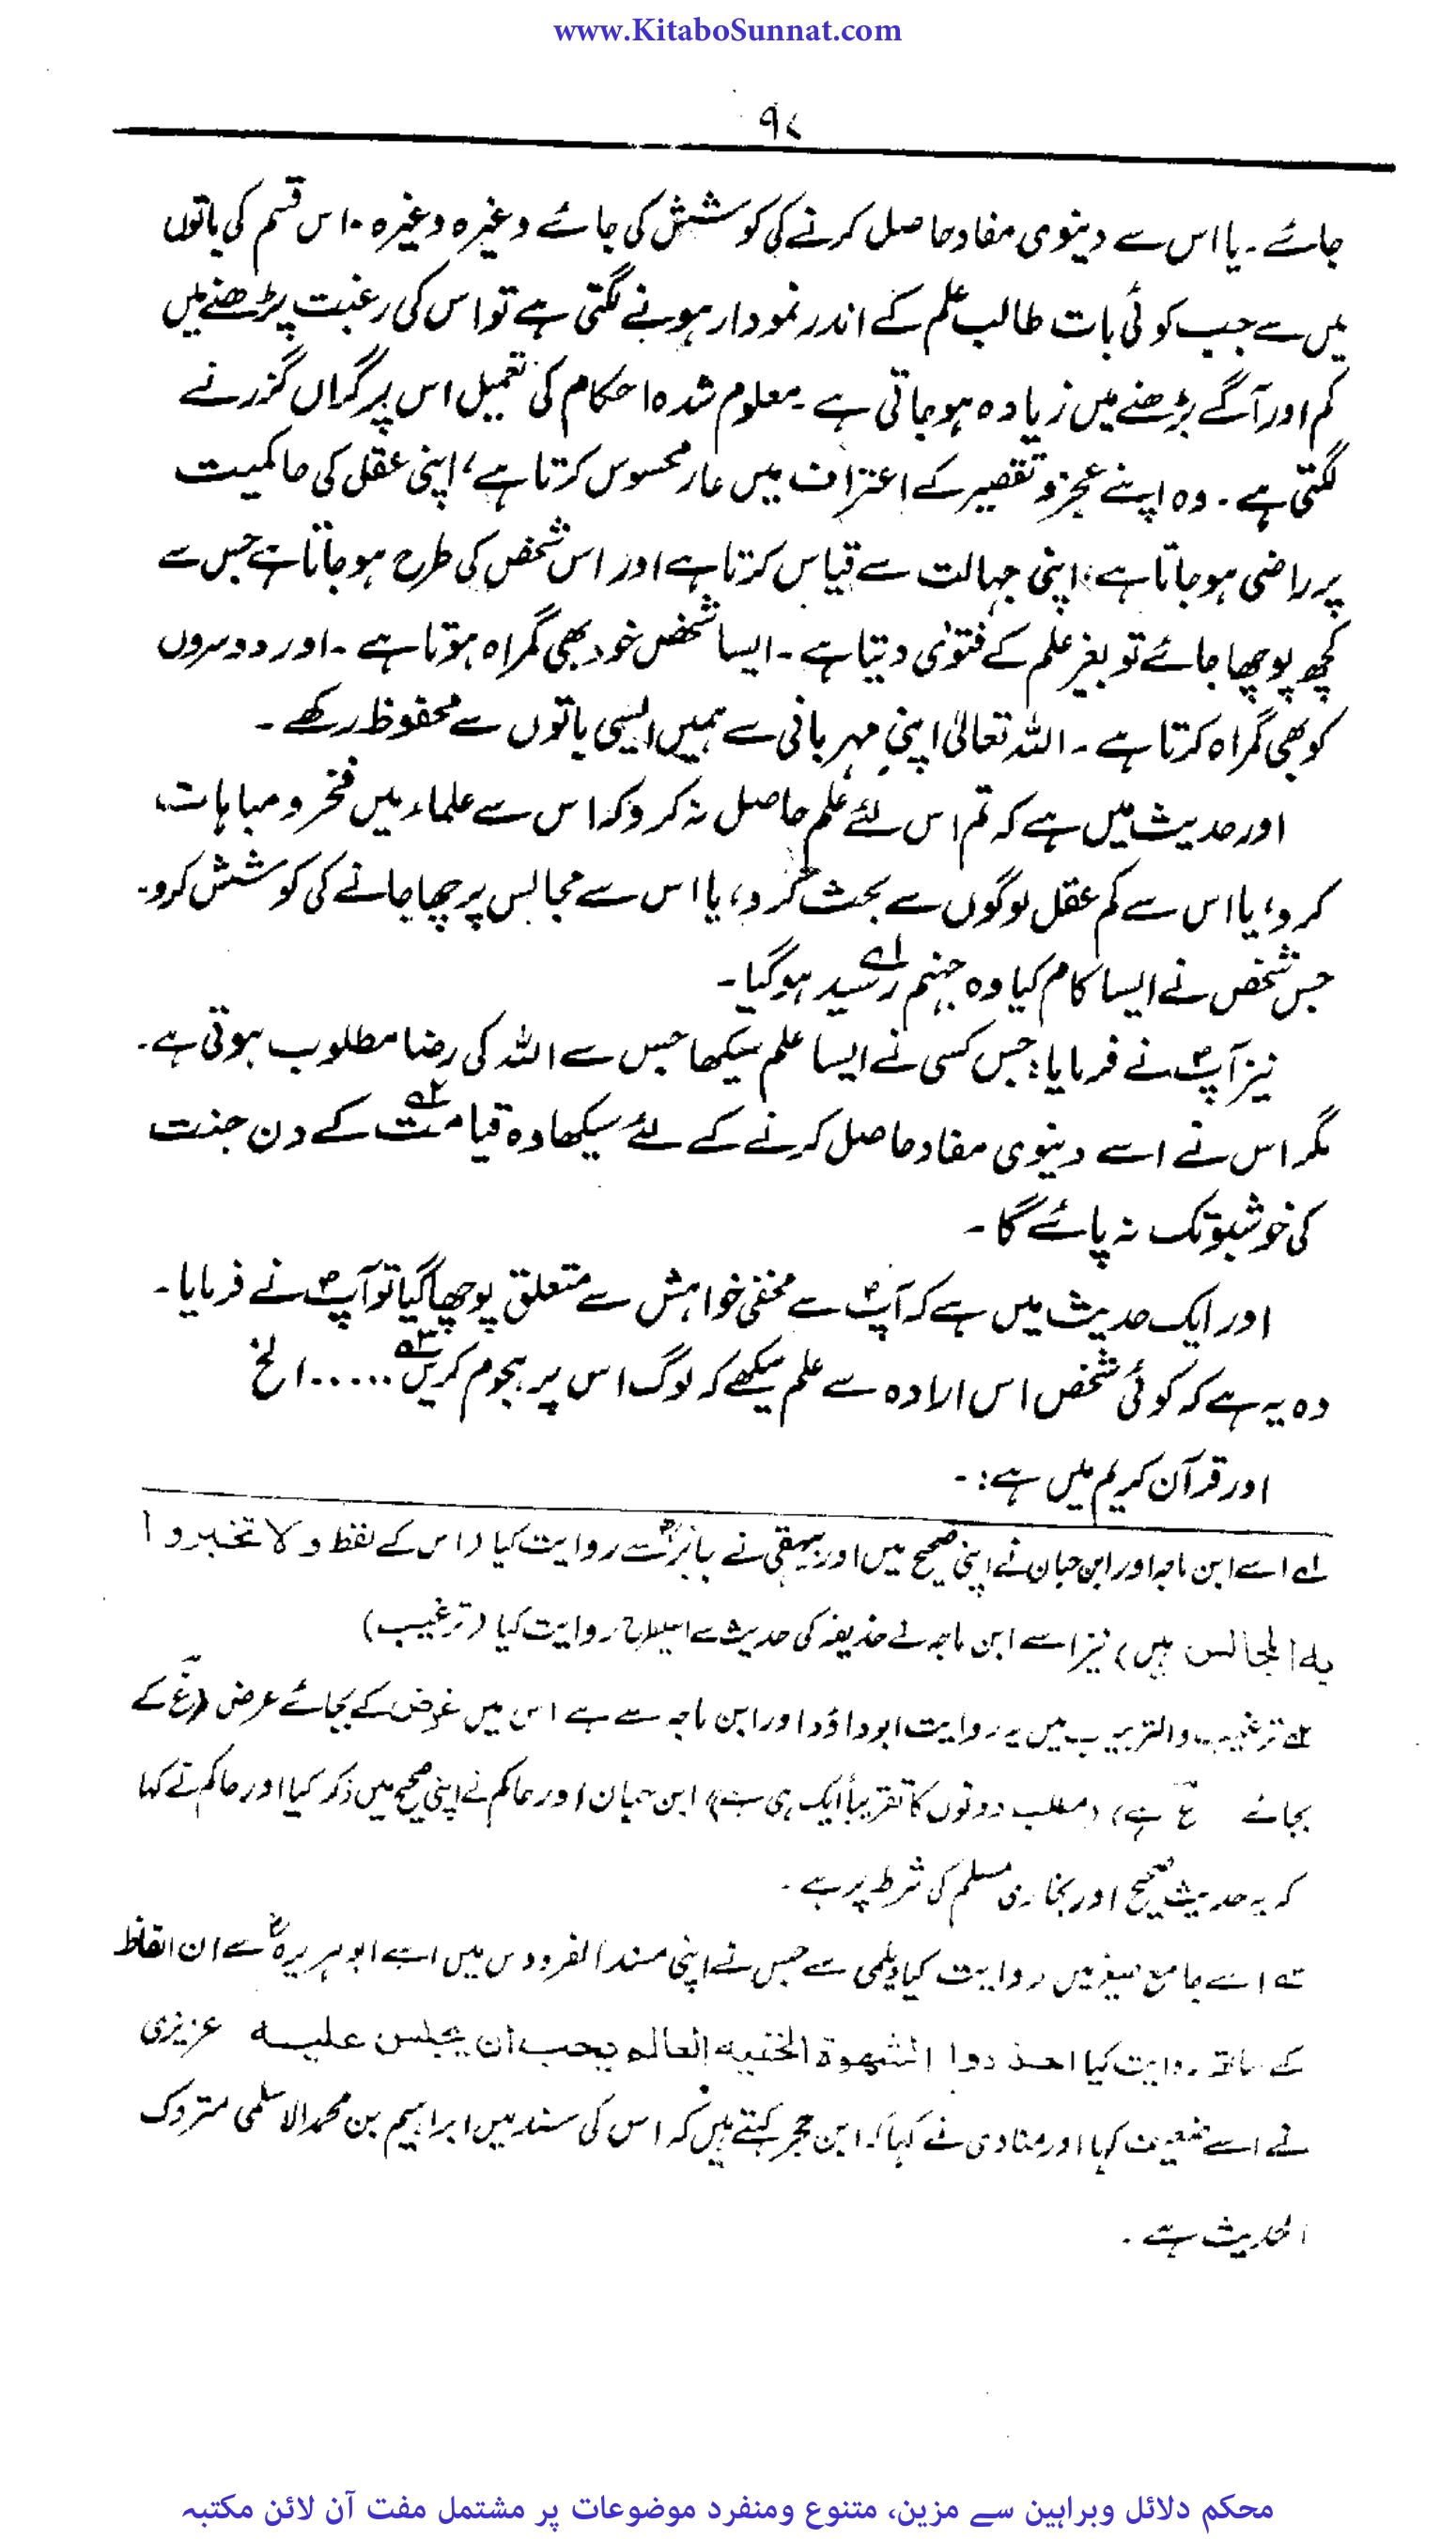 www.KitaboSunnat.com
۹۷
جائے۔ یا اس سے دینوی مفاد حاصل کرنے کی کوشش کی جائے وغیرہ وغیرہ ۔ اس قسم کی باتوں
میں سے جب کوئی بات طالب علم کے اندر نمودار ہونے لگتی ہے تو اس کی رغبت پڑھنے میں
کم اور آگے بڑھنے میں زیادہ ہو جاتی ہے ۔ معلوم شدہ احکام کی تعمیل اس پر گراں گزرنے
لگتی ہے ۔ وہ اپنے عجز و تقصیر کے اعتراف میں عار محسوس کرتا ہے، اپنی عقل کی حاکمیت
پر راضی ہو جاتا ہے، اپنی جہالت سے قیاس کرتا ہے اور اس شخص کی طرح ہو جاتا ہے جس سے
کچھ پوچھا جائے تو بغیر علم کے فتویٰ دیتا ہے ۔ ایسا شخص خود بھی گمراہ ہوتا ہے ۔ اور دوسروں
کو بھی گمراہ کرتا ہے ۔ اللہ تعالیٰ اپنی مہربانی سے ہمیں ایسی باتوں سے محفوظ رکھے ۔
اور حدیث میں ہے کہ تم اس لئے علم حاصل نہ کرو کہ اس سے علماء میں فخر و مباہات
کرو، یا اس سے کم عقل لوگوں سے بحث کرو، یا اس سے مجالس پر چھا جانے کی کوشش کرو۔
جس شخص نے ایسا کام کیا وہ جہنم رسید ہو گیا ۔ لہ
نیز آپؐ نے فرمایا: جس کسی نے ایسا علم سیکھا جس سے اللہ کی رضا مطلوب ہوتی ہے ۔
مگر اس نے اسے دینوی مفاد حاصل کرنے کے لئے سیکھا وہ قیامت کے دن جنت ۲ہ
کی خوشبو تک نہ پائے گا ۔
اور ایک حدیث میں ہے کہ آپؐ سے مخفی خواہش سے متعلق پوچھا گیا تو آپؐ نے فرمایا ۔
وہ یہ ہے کہ کوئی شخص اس ارادہ سے علم سیکھے کہ لوگ اس پر ہجوم کریں ۳ہ ...... الخ
اور قرآن کریم میں ہے: ۔
لہ اسے ابن ماجہ اور ابن حبان نے اپنی صحیح میں اور بیہقی نے جابرؓ سے روایت کیا (اس کے لفظ و لا تخیروا
بہ المجالس ہیں) نیز اسے ابن ماجہ نے حذیفہ کی حدیث سے اسی طرح روایت کیا (ترغیب)
۲ہ ترغیب والترہیب میں یہ روایت ابوداؤد اور ابن ماجہ سے ہے اس میں غرض کے بجائے عرض (غ کے
بجائے ع ہے) (مطلب دونوں کا تقریباً ایک ہی ہے) ابن حبان اور حاکم نے اپنی صحیح میں ذکر کیا اور حاکم نے کہا
کہ یہ حدیث صحیح اور بخاری مسلم کی شرط پر ہے ۔
۳ہ اسے جامع صغیر میں روایت کیا دیلمی سے جس نے اپنی مسند الفردوس میں اسے ابو ہریرہؓ سے ان الفاظ
کے ساتھ روایت کیا احذروا الشھوۃ الخفیہ العالم یحب ان یجلس علیہ عزیزی
نے اسے ضعیف کہا اور منادی نے کہا کہ ابن حجر کہتے ہیں کہ اس کی سند میں ابراہیم بن محمد الاسلمی متروک
الحدیث ہے ۔
محکم دلائل وبراہین سے مزین، متنوع ومنفرد موضوعات پر مشتمل مفت آن لائن مکتبہ